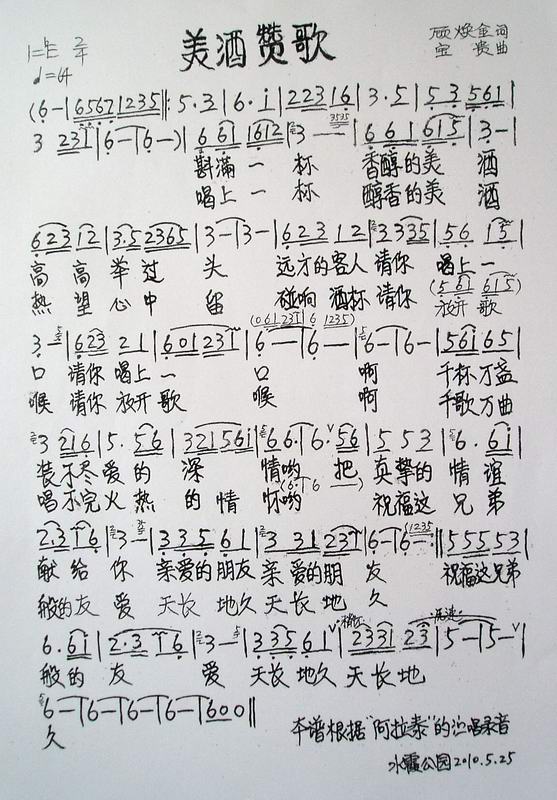 美酒赞歌
1=♭E 2/4
♩=64
顾焕金词
宝贵曲
(6-|6567 1235‖:5·3|6·i|2231 6|3·5|53 561|
3 231|6-|6-)|6 61 1612|3--|661 615|3-|
斟满一杯 香醇的美酒
喝上一杯 醇香的美酒
623 12|3·5 2365|3-|3-|623 12|3335|56 15|
高高举过头 远方的客人请你喝上一
热望心中留 碰响酒杯请你(放开歌
3-|623 21|601 231|6-|6-|6-|6-|561 65|
口请你喝上一口 啊 千杯万盏
喉请你放开歌喉 啊 千歌万曲
3 216|5·56|321 561|66·|6·56|553|6·61|
装不尽爱的深情哟 把真挚的情谊
唱不完火热的情怀哟 祝福这兄弟
2·3 16|3-|335 61|3 31 231|6-|6-‖55553|
献给你 亲爱的朋友亲爱的朋友 祝福这兄弟
般的友爱 天长地久天长地久
6·61|2·3 16|3-|335 61|2331 23|5-|5-|
般的友爱 天长地久天长地
6-|6-|6-|6-|600‖
久
本谱根据"阿拉泰"的演唱录音
水霞公园2010.5.25